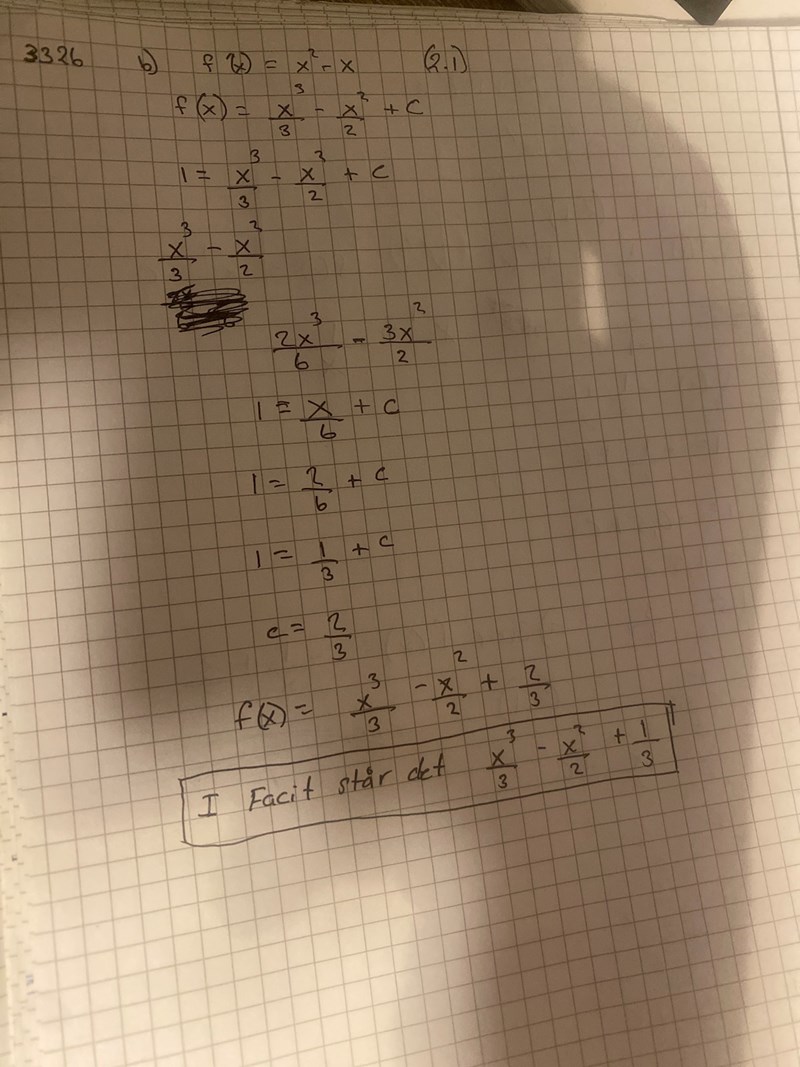 3326 b) f'(x) = x² - x (2.1)
f(x) = x³/3 - x²/2 + C
1 = x³/3 - x²/2 + C
x³/3 - x²/2
2x³/6 - 3x²/2
1 = x/6 + C
1 = 2/6 + C
1 = 1/3 + C
C = 2/3
f(x) = x³/3 - x²/2 + 2/3
I Facit står det x³/3 - x²/2 + 1/3